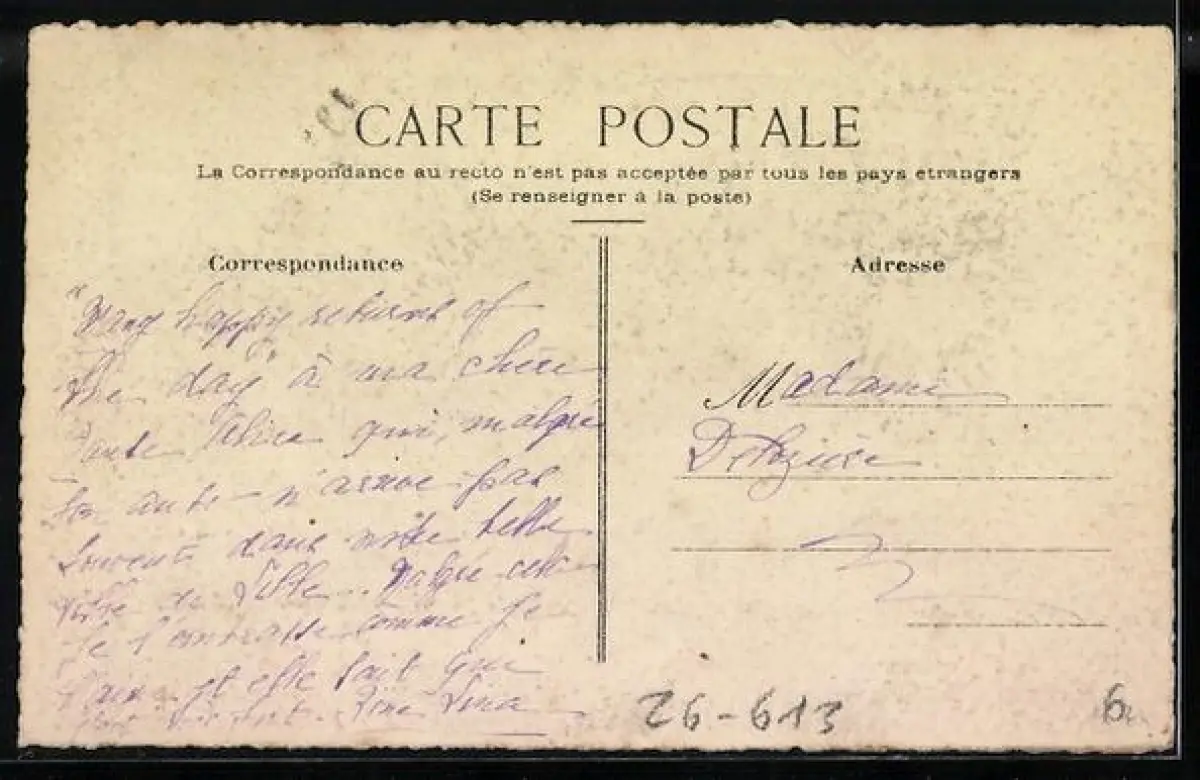 CARTE POSTALE
La Correspondance au recto n'est pas acceptée par tous les pays etrangers
(Se renseigner à la poste)
Correspondance
Adresse
"Many happy returns of
the day" à ma chère
tante qui, malgré
auto - n'arrive pas
souvent dans notre belle
ville de Malgré cela
je l'embrasse comme je
l'aime et elle sait que
Lina
Madame
26-613
6